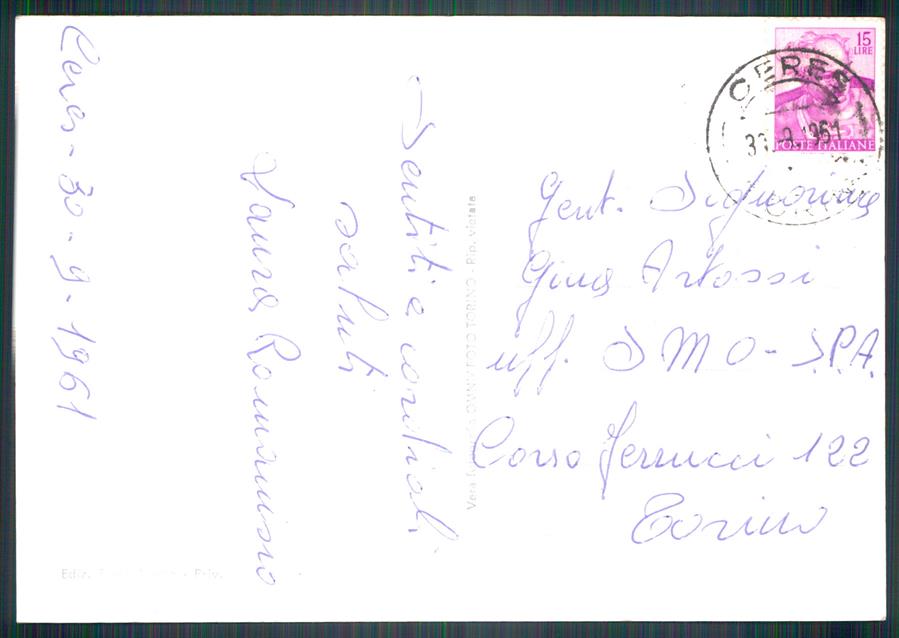 Ceres - 30 - 9 - 1961
Sentiti e cordiali
saluti
Laura Romanisio
15
LIRE
POSTE ITALIANE
CERES
30.9.1961
Gent. Signorina
Gina Artossi
uff. SMO - S.P.A.
Corso Ferrucci 122
Torino
Vera FOTO TORINO - Rip. vietata
Ediz. - Priv.